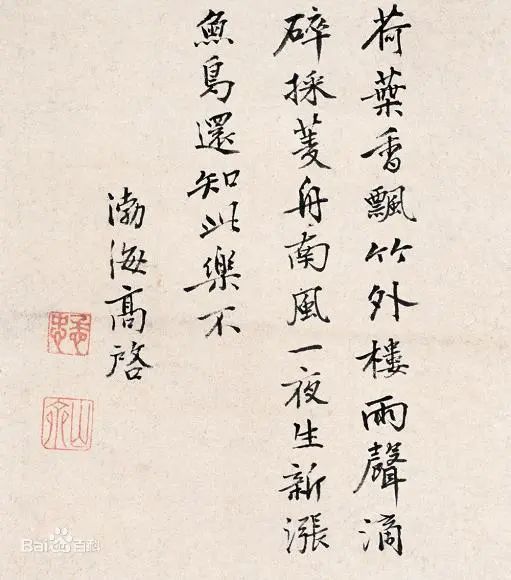 荷葉香飄竹外樓雨聲滴
碎採菱舟南風一夜生新漲
魚鳥還知此樂不
渤海髙啓
Bai百科